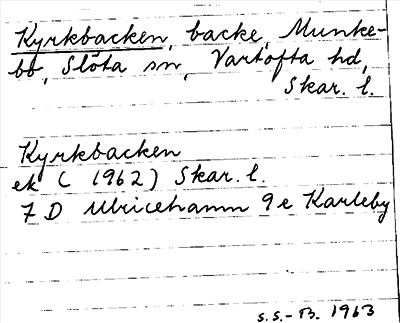 Kyrkbacken, backe, Munke-
bo, Slöta sn, Vartofta hd,
Skar. l.
Kyrkbacken
ek ( 1962) Skar. l.
7 D Ulricehamn 9e Karleby
S.S.-B. 1963